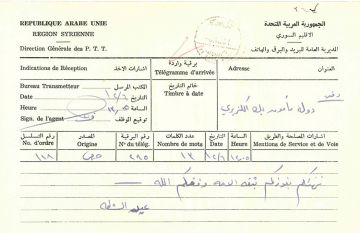 REPUBLIQUE ARABE UNIE
الجمهورية العربية المتحدة
REGION SYRIENNE
الاقليم السوري
Direction Générale des P. T. T.
المديرية العامة للبريد والبرق والهاتف
Indications de Réception
اشارات الاخذ
برقية واردة
Télégramme d'arrivée
Adresse
العنوان
Bureau Transmetteur
المكتب المرسل
Date
التاريخ
١٢/٦
Heure
الساعة
Sign. de l'agent
توقيع الموظف
خاتم التاريخ
Timbre à date
دولة مأمون بك الكزبري
دمشق
No. d'ordre
رقم التسلسل
Origine
المصدر
No. du télég.
رقم البرقية
Nombre de mots
عدد الكلمات
Date
التاريخ
Heure
الساعة
Mentions de Service et de Voie
اشارات المصلحة والطريق
حمص
٢٩٥
١٣
١٢/٦
نهنئكم بفوزكم بثقة الامة وفقكم الله